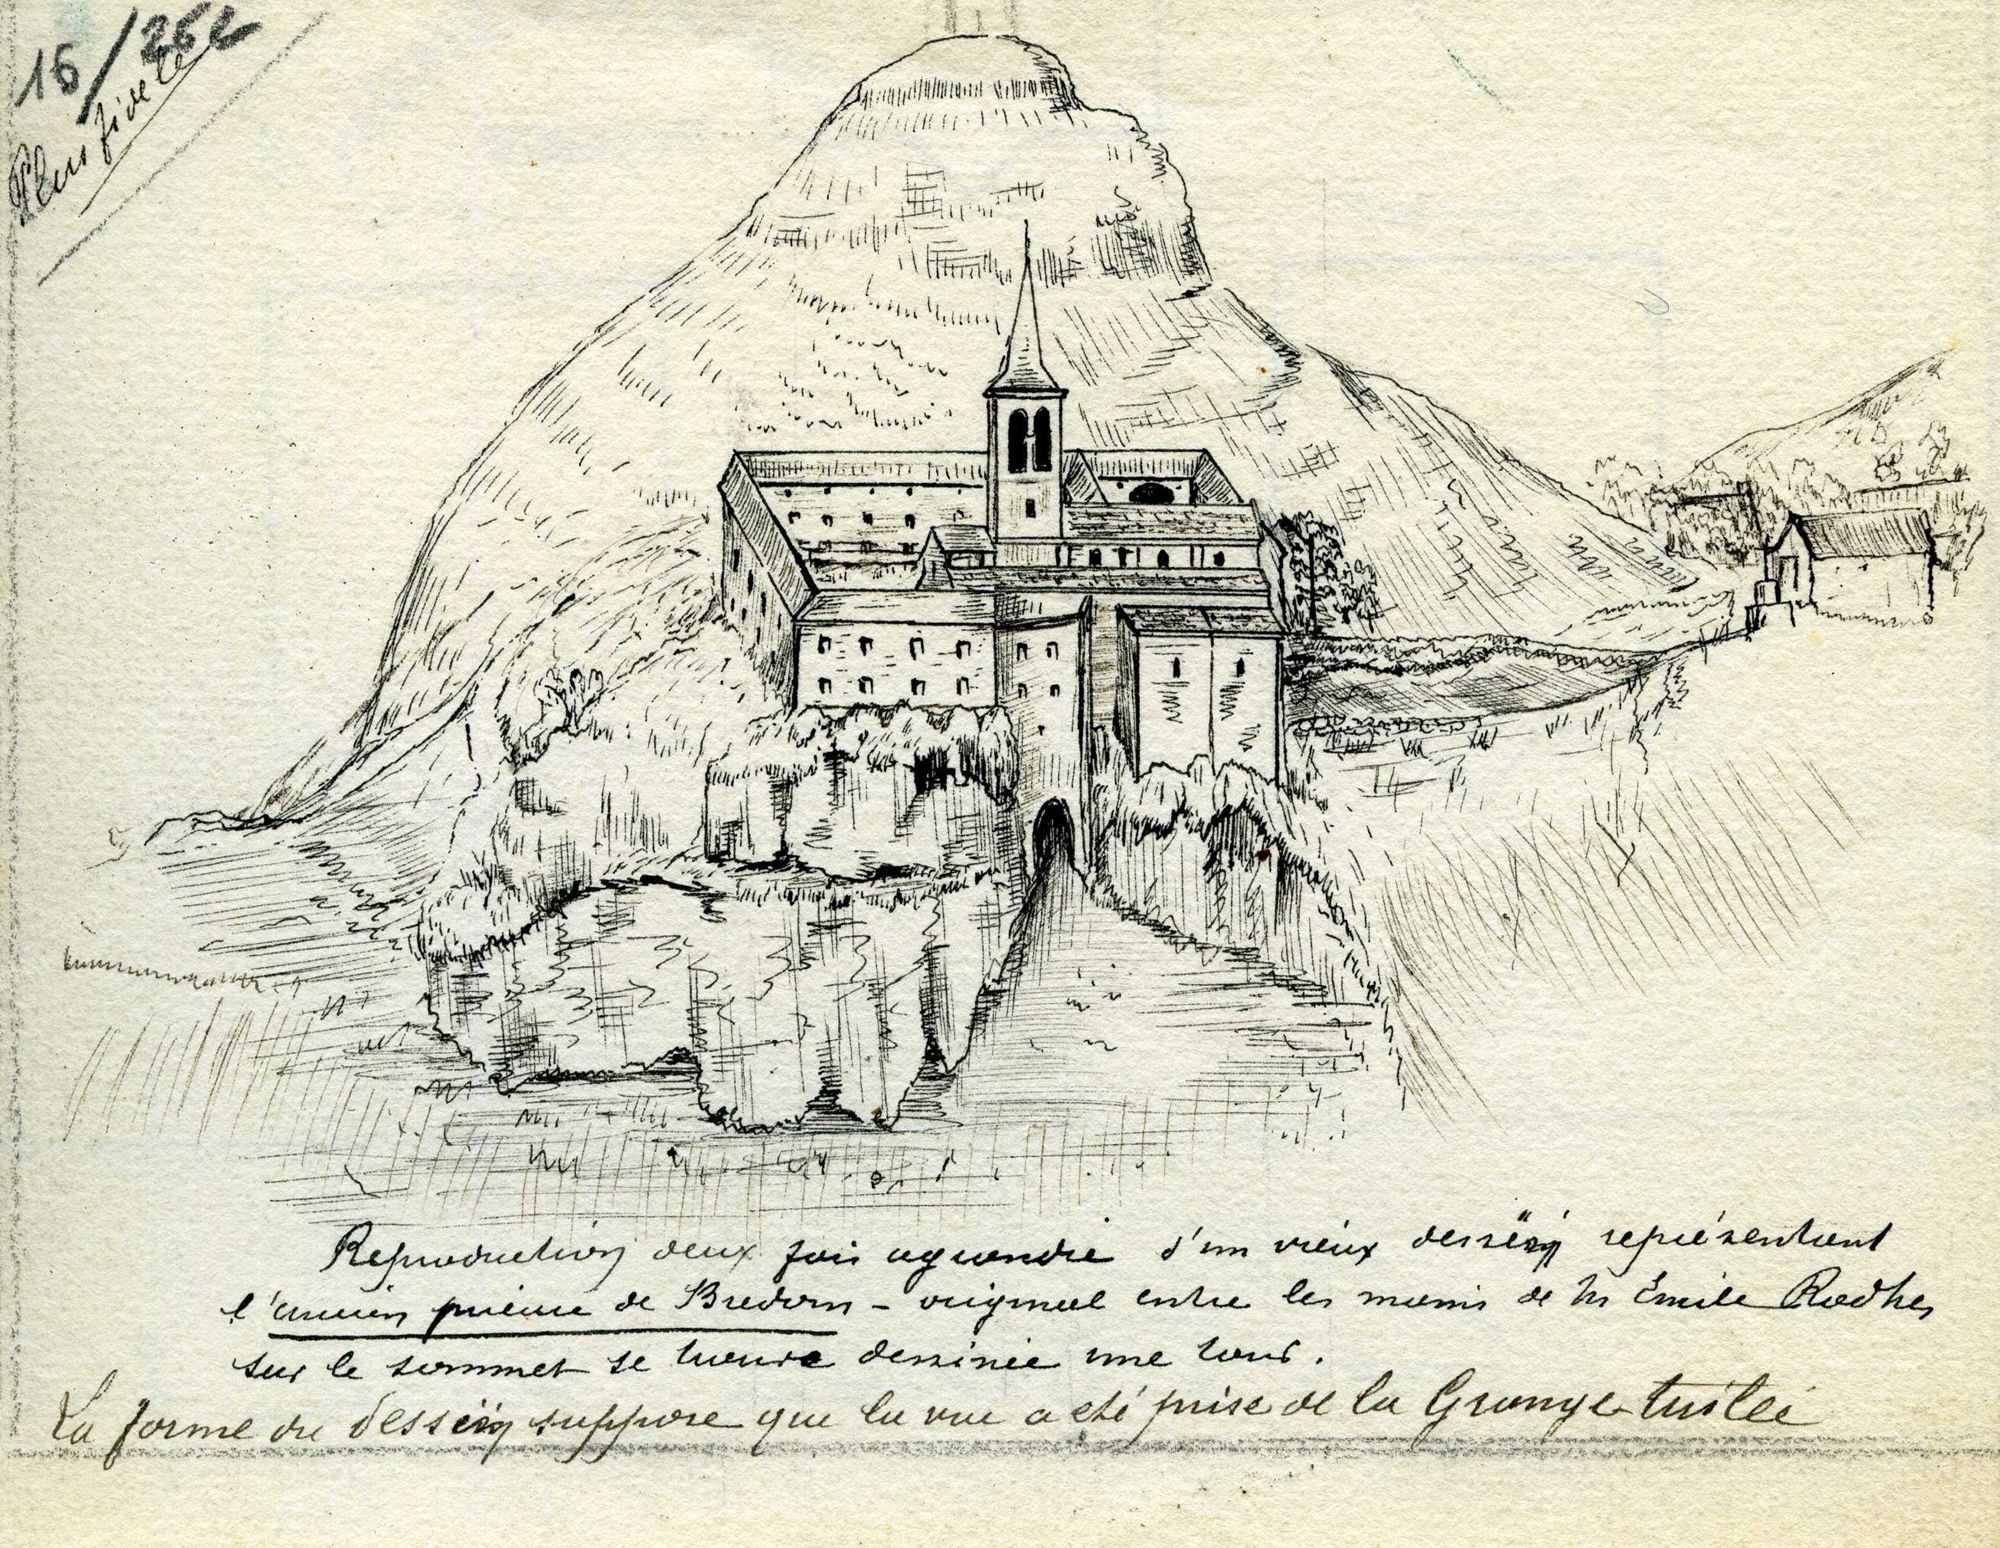 15/262
Plus
Reproduction deux fois agrandie d'un vieux dessëin représentant
l'ancien prieuré de Bredom - original entre les mains de Mr Émile Rodhes
sur le sommet se trouve dessinée une tour.
La forme du dessëin suppose que la vue a été prise de la Grange tuilée